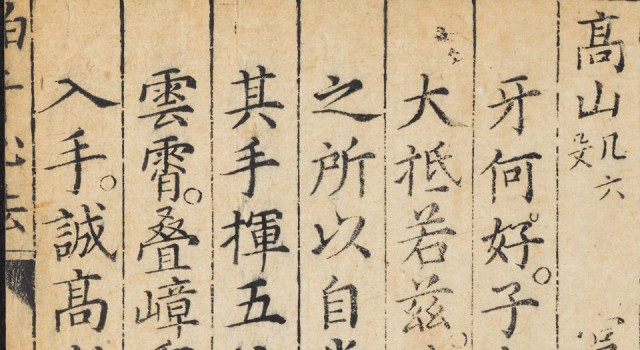 高山 凡六
牙何好。子
大抵若兹。
之所以自
其手揮五
雲霄。叠嶂
入手。誠高